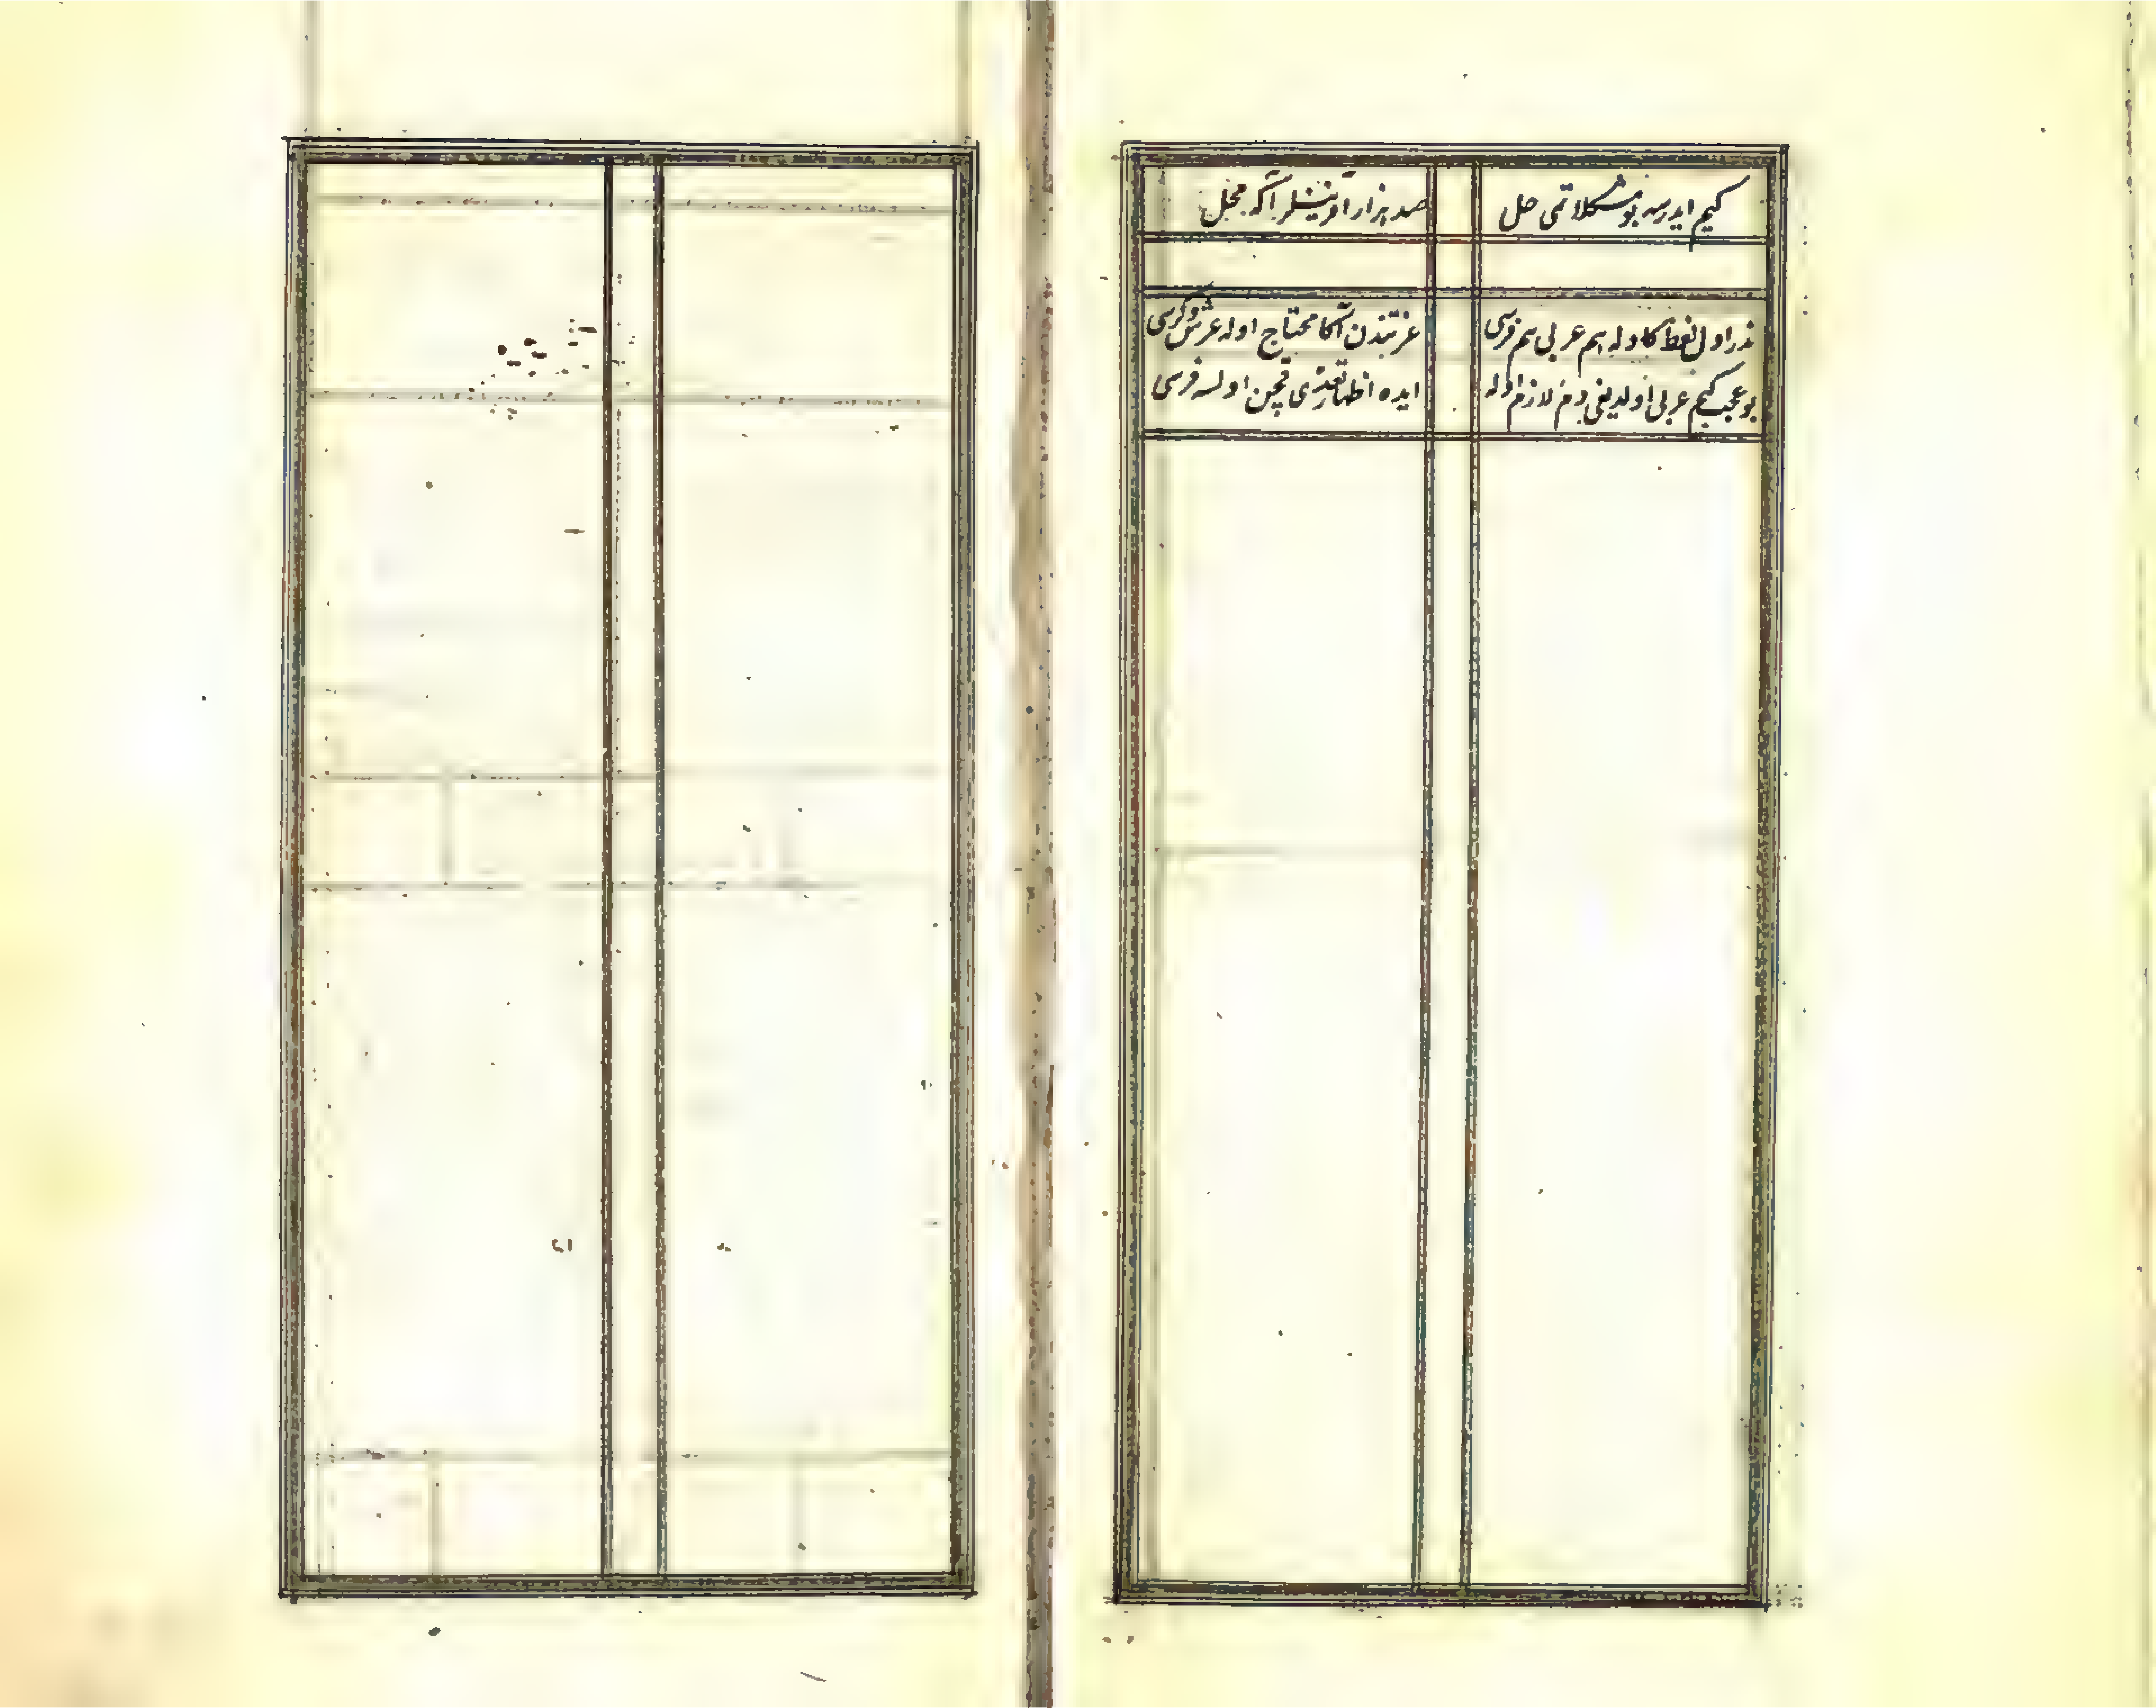 كیم ایدرسه بو مشكلاتی حل
صد هزار آفرینشلر آكه محل
ندر اول لفظ كاوله هم عربی هم فرسی
عزتندن آكا محتاج اوله عرش و كرسی
بو عجب كیم عربی اولدیغی دم لازم اوله
ایده اظهار تعذری قچن اولسه فرسی